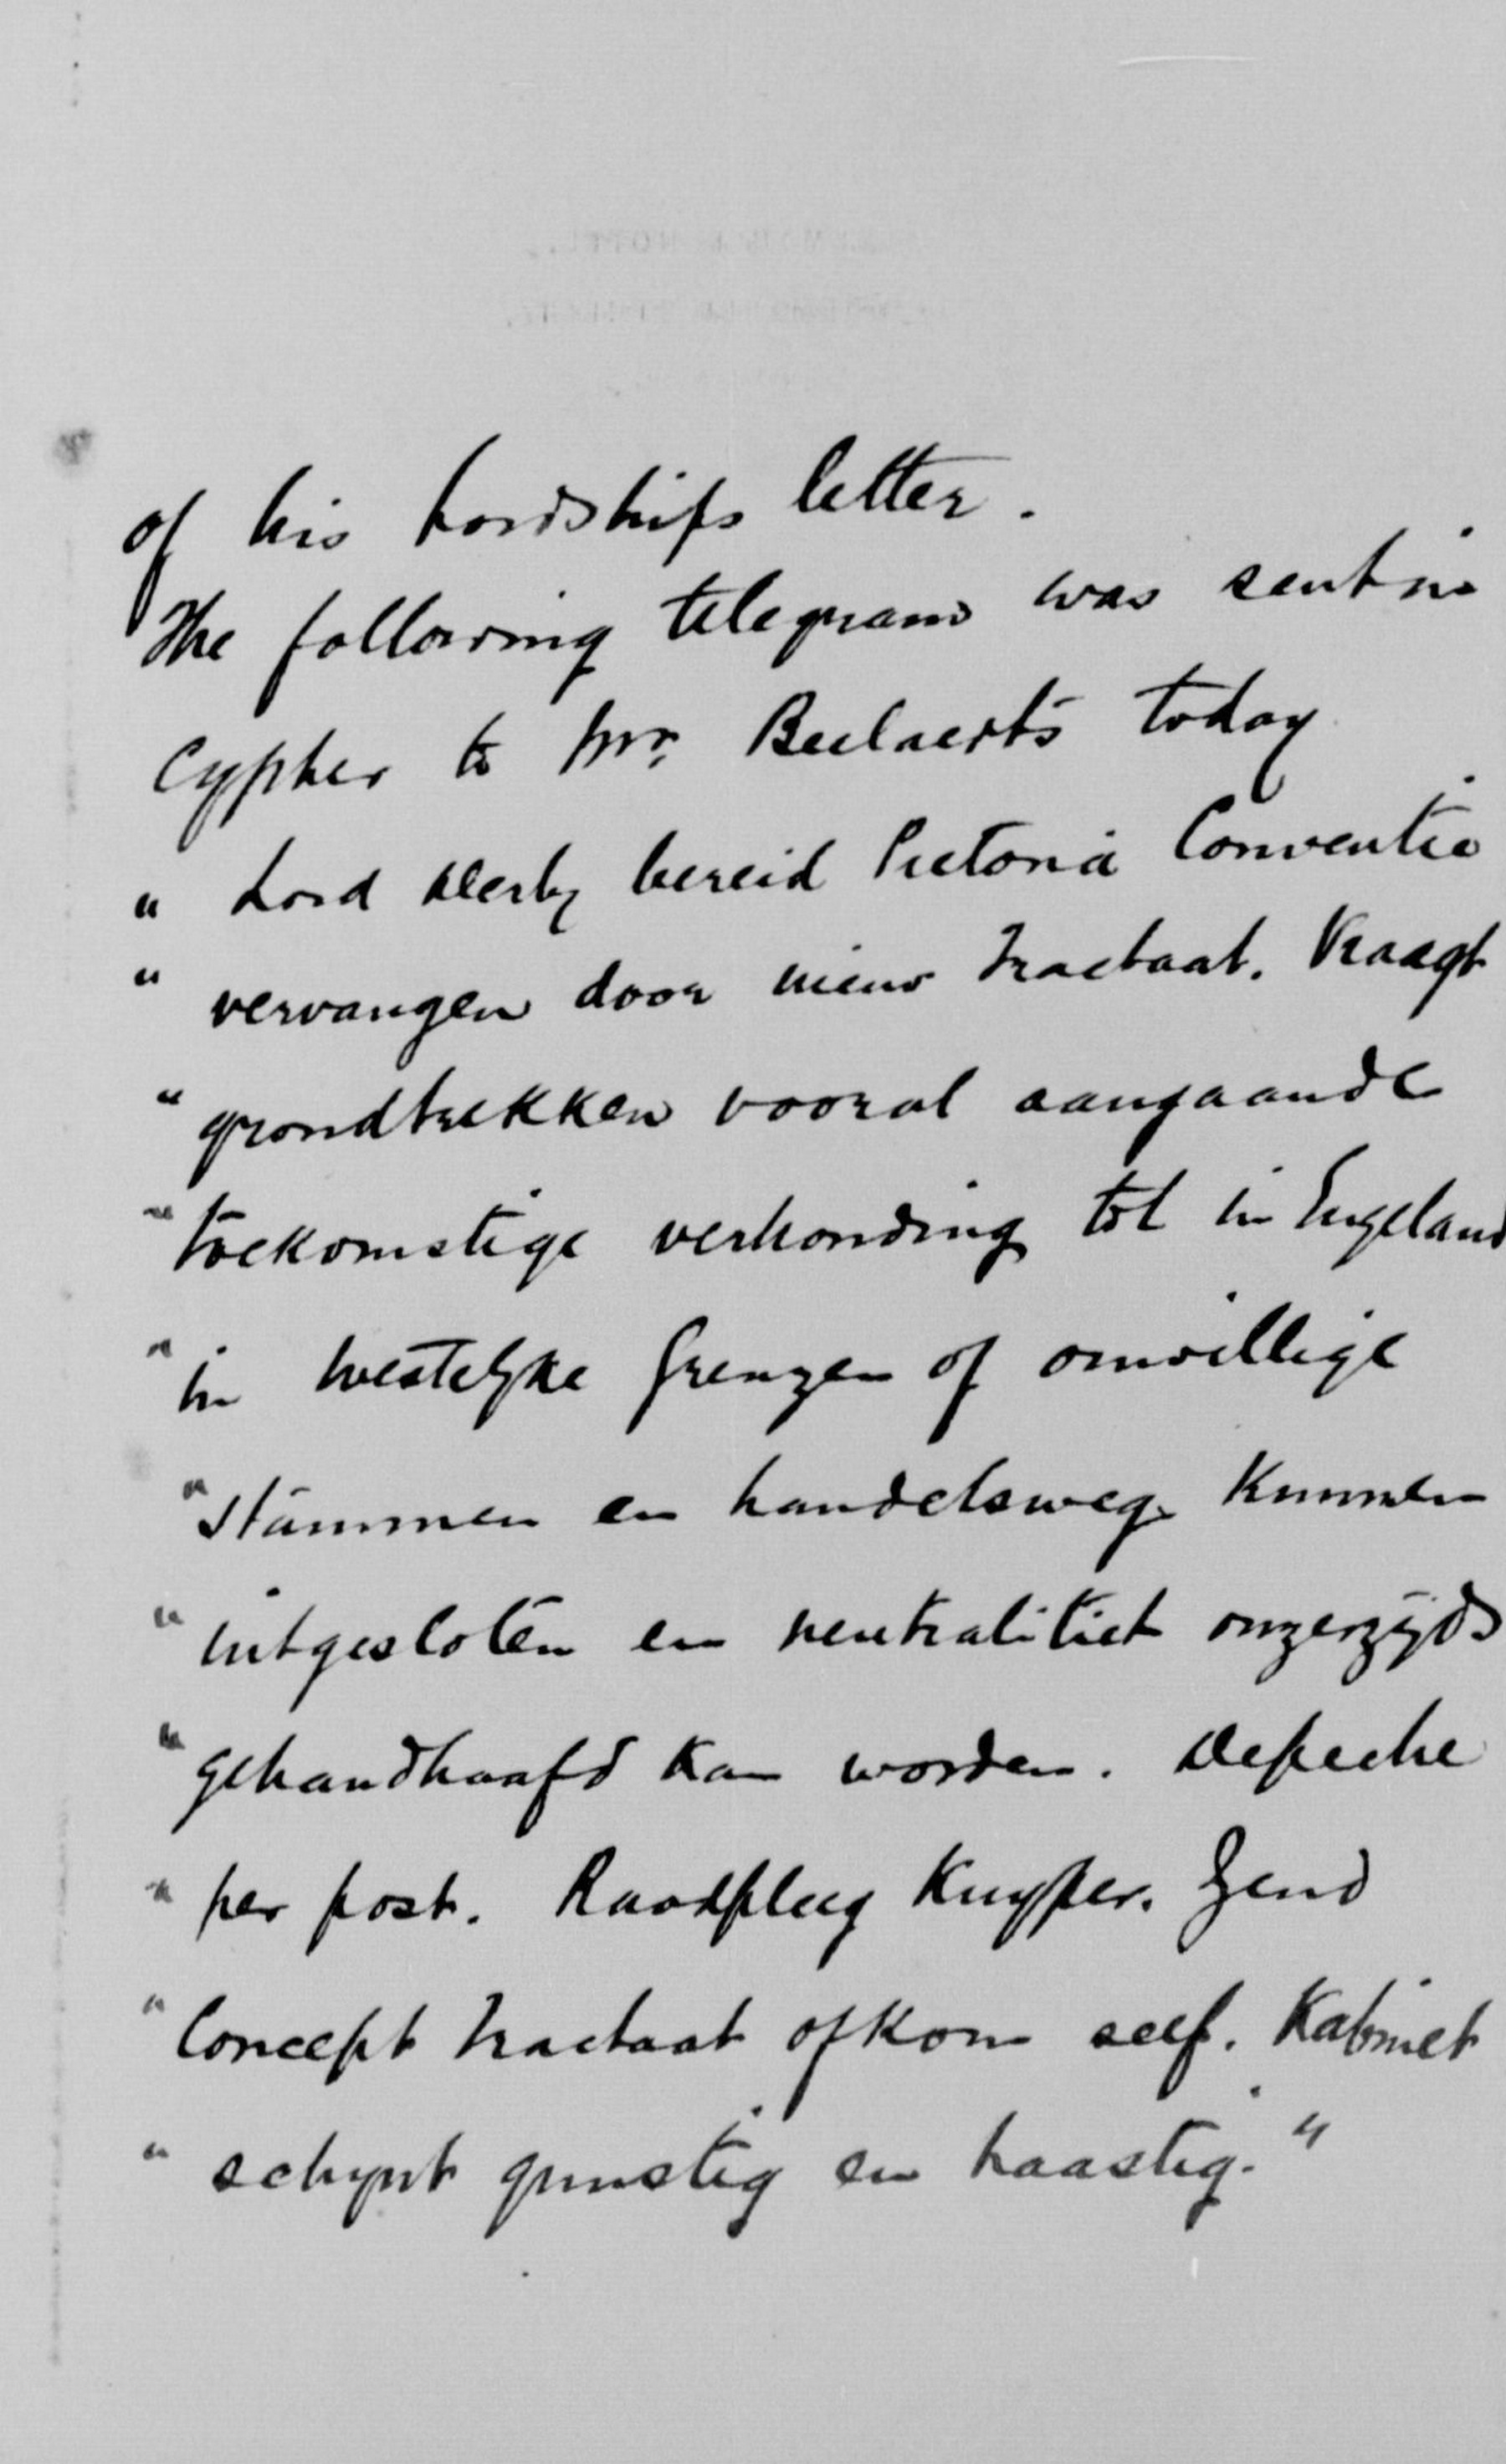 of his Lordships letter.
The following telegram was sent in
Cypher to Mr. Beelaerts today
" Lord Derby bereid Pretoria Conventie
" vervangen door nieuw Tractaat. Vraagt
" grondtrekken vooral aangaande
" toekomstige verhouding tot Engeland
" westelyke grenzen of onwillige
" stammen en handelsweg kunnen
" uitgesloten en neutraliteit onzerzyds
" gehandhaafd kan worden. Depeche
" per post. Raadpleeg Kuyper. Zend
" Concept Tractaat of kom self. Kabinet
" schynt gunstig en haastig."